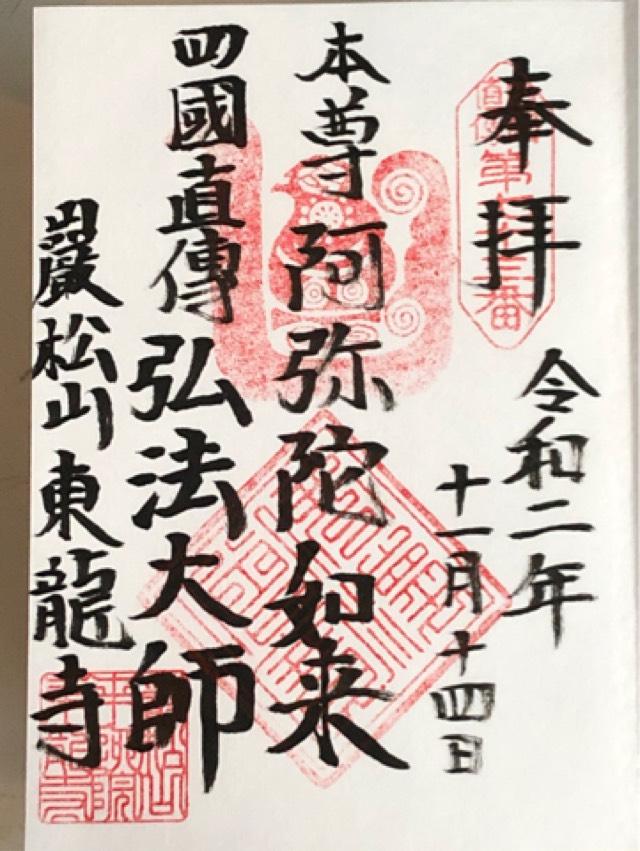 奉拝
令和二年
十一月十四日
本尊阿弥陀如来
四國直傳弘法大師
巖松山東龍寺